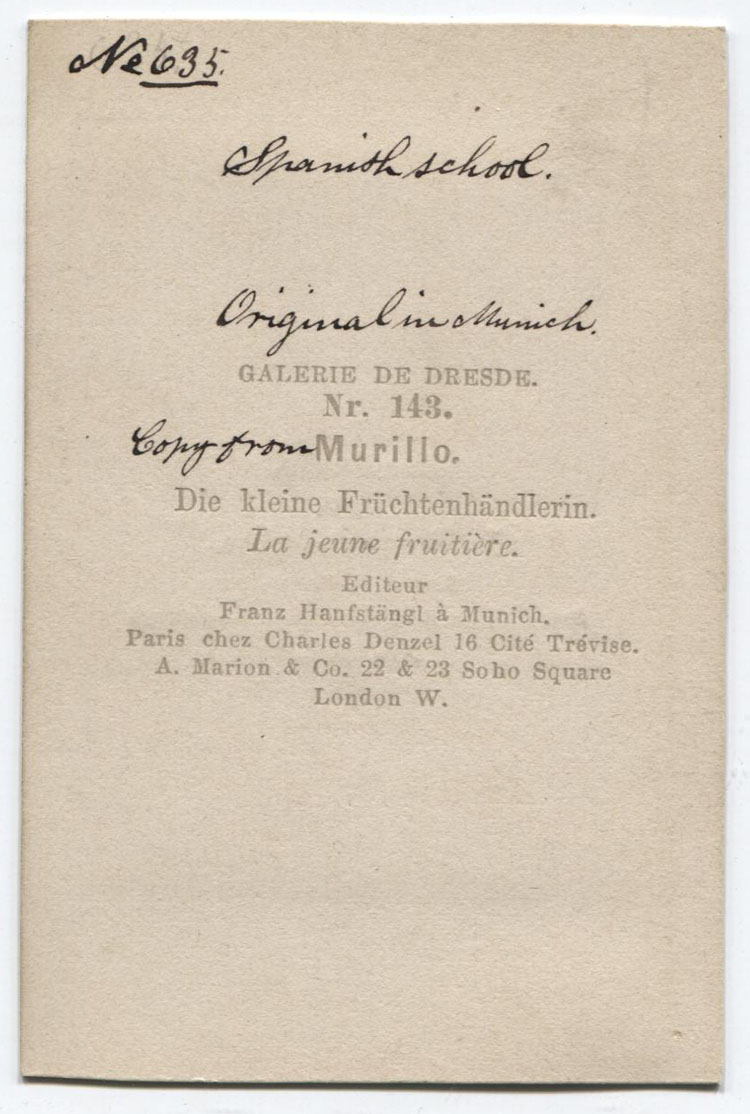 Nº 635.
Spanish school.
Original in Munich.
GALERIE DE DRESDE.
Nr. 143.
Copy from Murillo.
Die kleine Früchtenhändlerin.
La jeune fruitière.
Editeur
Franz Hanfstängl à Munich.
Paris chez Charles Denzel 16 Cité Trévise.
A. Marion & Co. 22 & 23 Soho Square
London W.